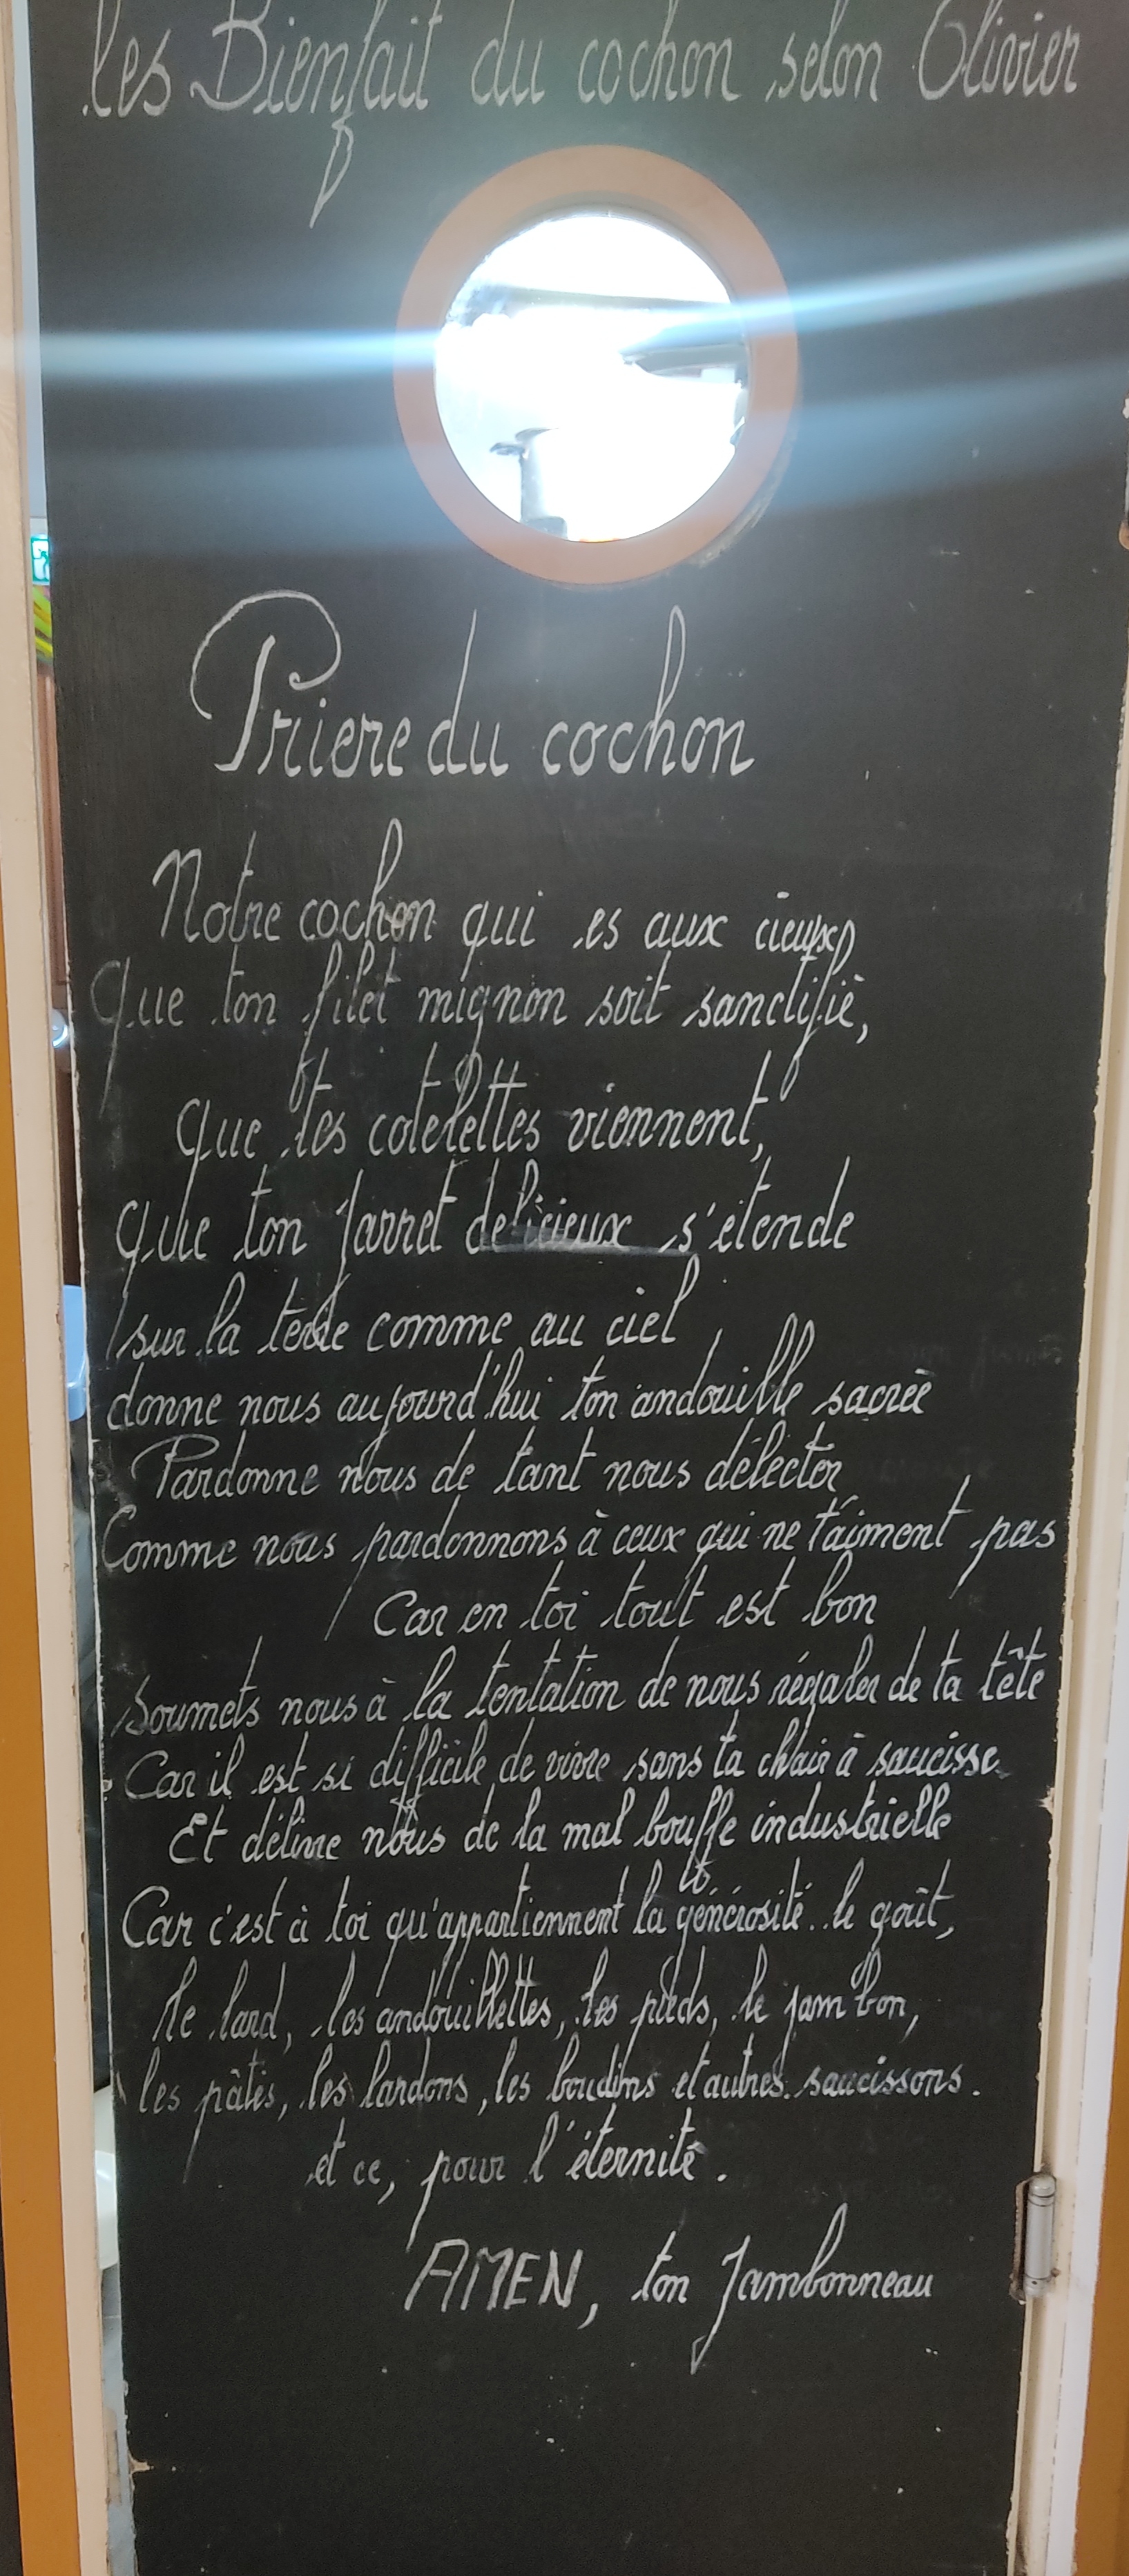 les Bienfait du cochon selon Olivier
Priere du cochon
Notre cochon qui es aux cieux
Que ton filet mignon soit sanctifié,
Que tes cotelettes viennent,
Que ton jarret delicieux s'étende
sur la terre comme au ciel,
donne nous aujourd'hui ton andouille sacrée
Pardonne nous de tant nous délecter
Comme nous pardonnons à ceux qui ne t'aiment pas
Car en toi tout est bon
Soumets nous à la tentation de nous régaler de ta tête
Car il est si difficile de vivre sans ta chair à saucisse
Et délivre nous de la mal bouffe industrielle
Car c'est à toi qu'appartiennent la générosité.. le goût,
le lard, les andouillettes, les pieds, le jambon,
les pâtés, les lardons, les boudins et autres saucissons.
et ce, pour l'éternité.
AMEN, ton Jambonneau